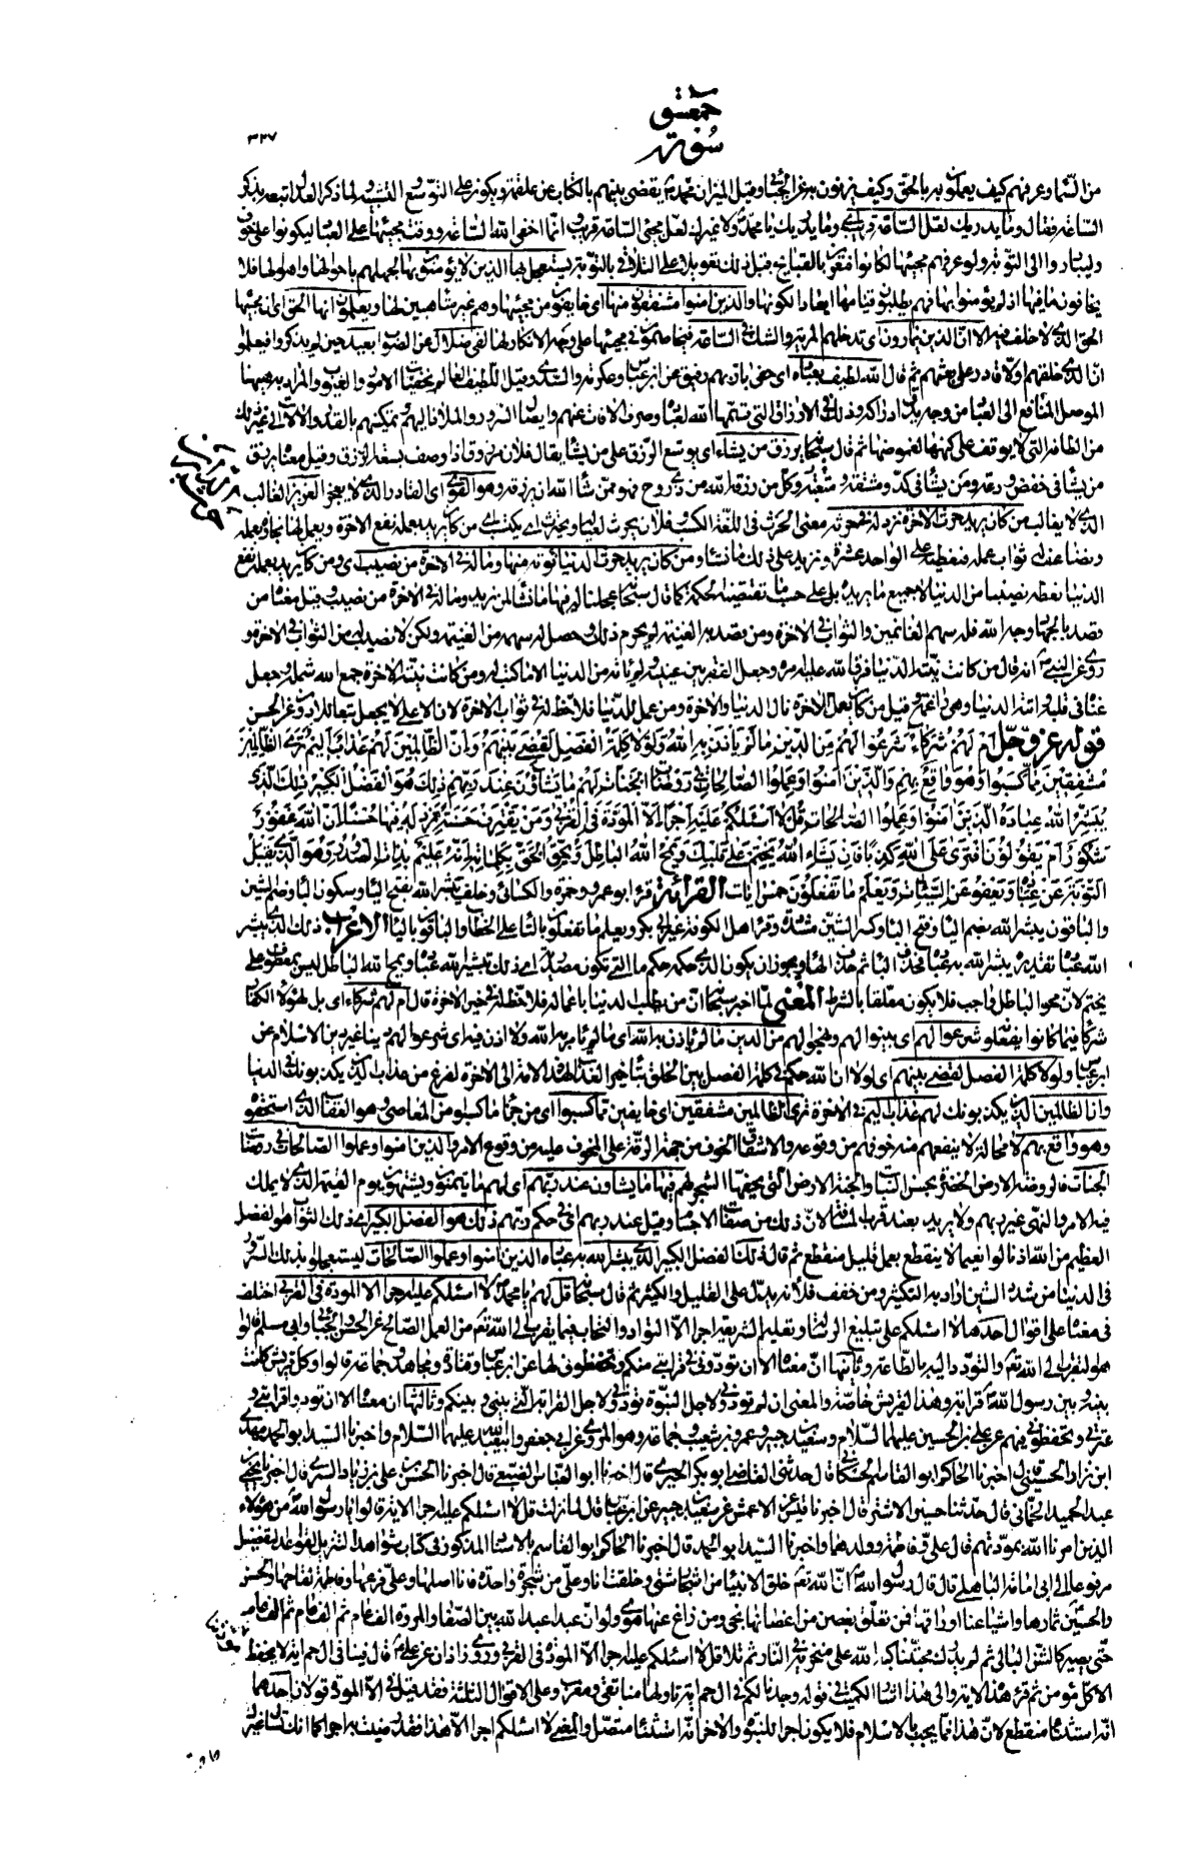 حمعسق
٣٢٧
سورة
من السماء وعرفهم كيف يعملون به بالحق وكيف يزنون به عن الجبائي وقيل الميزان محمد يقضي بينهم بالكتاب عن علقمة ويكون على التوسع والتشبيه لما ذكر العدل اتبعه بذكر
الساعة فقال وما يدريك لعل الساعة قريب اي وما يدريك يا محمد ولا غيرك لعل مجئ الساعة قريب وانما اخفى الله الساعة ووقت مجيئها على العباد ليكونوا على خوف
وليبادروا الى التوبة ولو عرفهم مجيئها لكانوا مغرين بالقبائح قبل ذلك تعويلا على التلافي بالتوبة يستعجل بها الذين لا يؤمنون بها لجهلهم باحوالها واهوالها فلا
يخافون ما فيها اذ لم يؤمنوا بها فهم يطلبون قيامها ابعادا لكونها والذين امنوا مشفقون منها اي خايفون من مجيئها وهم غير متاهبين لها ويعلمون انها الحق اي ان مجيئها
الحق الذي لا خلف فيه الا ان الذين يمارون اي تدخلهم المرية والشك في الساعة فيخاصمون في مجيئها على وجه الانكار لها لفي ضلال عن الصواب بعيد حين لم يذكروا فيعلموا
ان الذي خلقهم اولا قادر على بعثهم ثم قال الله لطيف بعباده اي حفي بارّ بهم رفيق عن ابن عباس وعكرمة والسدي وقيل اللطيف العالم بخفيات الامور والغيوب والمراد به هيهنا
الموصل المنافع الى العباد من وجه يدق ادراكه وذلك في الارزاق التي قسمها الله لعباده وصرف الافات عنهم وايصال السرور والملاذ اليهم وتمكينهم بالقدر والالات الى غير ذلك
من الطافه التي لا يوقف على كنهها لغموضها ثم قال سبحانه يرزق من يشاء اي يوسع الرزق على من يشاء يقال فلان مرزوق اذا وصف بسعة الرزق وقيل معناه يرزق
من يشاء في خفض ودعة ومن يشاء في كد ومشقة ومتعبة وكل من رزقه الله من ذي روح فهو ممن شاء الله ان يرزقه وهو القوي اي القادر الذي لا يعجز العزيز الغالب
الذي لا يغالب من كان يريد حرث الاخرة نزد له في حرثه معنى الحرث في اللغة الكسب فلان يحرث لعياله ويحترث اي يكتسب اي من كان يريد بعمله نفع الاخرة ويعمل لها نجازه بعمله
ونضاعف له ثواب عمله فنعطيه على الواحد عشرة ونزيد على ذلك ما نشاء ومن كان يريد حرث الدنيا نؤته منها وما له في الاخرة من نصيب اي ومن كان يريد بعمله نفع
الدنيا نعطه نصيبا من الدنيا لا جميع ما يريده بل على حسب ما تقتضيه الحكمة كما قال سبحانه عجلنا له فيها ما نشاء لمن نريد وما له في الاخرة من نصيب وقيل معناه من
قصد بالجهاد وجه الله فله سهم الغانمين والثواب في الاخرة ومن قصد به الغنيمة لم يحرم ذلك وحصل له سهمه من الغنيمة ولكن لا نصيب له من الثواب في الاخرة و
روي عن النبي انه قال من كانت نيته الدنيا فرق الله عليه امره وجعل الفقر بين عينيه ولم ياته من الدنيا الا ما كتب له ومن كانت نيته الاخرة جمع الله شمله وجعل
غناه في قلبه واتته الدنيا وهي راغمة وقيل من كان يعمل للاخرة نال الدنيا والاخرة ومن عمل للدنيا فلا حظ له في ثواب الاخرة لان الاعلى لا يجعل تبعا للادون عن الحسن
قوله عز وجل ام لهم شركاء شرعوا لهم من الدين ما لم ياذن به الله ولولا كلمة الفصل لقضي بينهم وان الظالمين لهم عذاب اليم ترى الظالمين
مشفقين مما كسبوا وهو واقع بهم والذين امنوا وعملوا الصالحات في روضات الجنات لهم ما يشاؤن عند ربهم ذلك هو الفضل الكبير ذلك الذي
يبشر الله عباده الذين امنوا وعملوا الصالحات قل لا اسئلكم عليه اجرا الا المودة في القربى ومن يقترف حسنة نزد له فيها حسنا ان الله غفور
شكور ام يقولون افترى على الله كذبا فان يشاء الله يختم على قلبك ويمح الله الباطل ويحق الحق بكلماته انه عليم بذات الصدور وهو الذي يقبل
التوبة عن عباده ويعفو عن السيئات ويعلم ما تفعلون خمس ايات القراءة قرء ابو عمرو وحمزة والكسائي وخلف يبشر الله بفتح الياء وسكون الباء وضم الشين
والباقون يبشر الله بضم الياء وفتح الباء وكسر الشين مشددة وقرء اهل الكوفة غير ابي بكر ويعلم ما تفعلون بالتاء على الخطاب والباقون بالياء الاعراب ذلك الذي يبشر
الله عباده تقديره يبشر الله به عباده فحذف الباء ثم حذف الهاء ويجوز ان يكون الذي حكمه حكم ما التي تكون مصدرا اي ذلك تبشير الله عباده ويمحو الله الباطل ليس بمعطوف على
يختم لان محو الباطل واجب فلا يكون معلقا بالشرط المعنى لما اخبر سبحانه ان من يطلب الدنيا باعماله فلا حظ له في خير الاخرة قال ام لهم شركاء اي بل لهؤلاء الكفار
شركاء فيما كانوا يفعلونه شرعوا لهم اي بينوا لهم ونهجوا لهم من الدين ما لم ياذن به الله اي ما لم يامر به الله ولا اذن فيه اي شرعوا لهم دينا غير دين الاسلام عن
ابن عباس ولولا كلمة الفصل لقضي بينهم اي لولا ان الله حكم في كلمة الفصل بين الخلق بتاخير العذاب لهذه الامة الى الاخرة لفرغ من عذاب الذين يكذبونك في الدنيا
وان الظالمين الذين يكذبونك لهم عذاب اليم في الاخرة ترى الظالمين مشفقين اي خايفين مما كسبوا اي من جزاء ما كسبوا من المعاصي وهو العقاب الذي استحقوه
وهو واقع بهم لا محالة لا ينفعهم منه خوفهم من وقوعه والاشفاق الخوف من جهة الرقة على المخوف عليه من وقوع الامر والذين امنوا وعملوا الصالحات في روضات
الجنات فالروضة الارض الخضرة بحسن النبات والجنة الارض التي يحفها الشجر لهم فيها ما يشاؤن عند ربهم اي لهم ما يتمنون ويشتهون يوم القيمة الذي لا يملك
فيه الامر والنهي غير ربهم ولا يريد بعند قرب المسافة لان ذلك من صفات الاجسام وقيل عند ربهم اي في حكم ربهم ذلك هو الفضل الكبير اي ذلك الثواب هو الفضل
العظيم من الله اذ نالوا نعيما لا ينقطع بعمل قليل منقطع ثم قال ذلك الفضل الكبير الذي يبشر الله به عباده الذين امنوا وعملوا الصالحات ليستعجلوا بذلك السرور
في الدنيا من شدد الشين اراد به التكثير ومن خفف فلانه يدل على القليل والكثير ثم قال سبحانه قل لهم يا محمد لا اسئلكم عليه اجرا الا المودة في القربى اختلف
في معناه على اقوال احدها لا اسئلكم على تبليغ الرسالة وتعليم الشريعة اجرا الا التواد والتحاب فيما يقرب الى الله تعالى من العمل الصالح عن الحسن والجبائي وابي مسلم قالوا
هو التقرب الى الله تعالى والتودد اليه بالطاعة وثانيها ان معناه الا ان تودوني في قرابتي منكم وتحفظوني لها عن ابن عباس وقتادة ومجاهد وجماعة قالوا وكل قريش كانت
بينه وبين رسول الله قرابة وهذا لقريش خاصة والمعنى ان لم تودوني لاجل النبوة فودوني لاجل القرابة التي بيني وبينكم وثالثها ان معناه الا ان تودوا قرابتي و
عترتي وتحفظوني فيهم عن علي بن الحسين عليهما السلام وسعيد بن جبير وعمرو بن شعيب وجماعة وهو المروي عن ابي جعفر وابي عبد الله عليهما السلام واخبرنا السيد ابو الحمد مهدي
ابن نزار الحسيني قال اخبرنا الحاكم ابو القاسم الحسكاني قال حدثني القاضي ابو بكر الحيري قال اخبرنا ابو العباس الضبعي قال اخبرنا الحسن بن علي بن زياد السري قال اخبرنا يحيى بن
عبد الحميد الحماني قال حدثنا حسين الاشتر قال اخبرنا قيس عن الاعمش عن سعيد بن جبير عن ابن عباس قال لما نزلت قل لا اسئلكم عليه اجرا الاية قالوا يا رسول الله من هؤلاء
الذين امرنا الله بمودتهم قال علي وفاطمة وولدهما واخبرنا السيد ابو الحمد قال اخبرنا الحاكم ابو القاسم بالاسناد المذكور في كتاب شواهد التنزيل لقواعد التفضيل
مرفوعا الى ابي امامة الباهلي قال قال رسول الله ان الله تعالى خلق الانبياء من اشجار شتى وخلقت انا وعلي من شجرة واحدة فانا اصلها وعلي فرعها وفاطمة لقاحها والحسن
والحسين ثمارها واشياعنا اوراقها فمن تعلق بغصن من اغصانها نجى ومن زاغ عنها هوى ولو ان عبدا عبد الله بين الصفا والمروة الف عام ثم الف عام ثم الف عام
حتى يصير كالشن البالي ثم لم يدرك محبتنا كبه الله على منخريه في النار ثم تلا قل لا اسئلكم عليه اجرا الا المودة في القربى وروى زاذان عن علي قال فينا في ال حم اية لا يحفظ
الا كل مؤمن ثم قرء هذه الاية والى هذا اشار الكميت في قوله وجدنا لكم في ال حم اية تاولها منا تقي ومعرب وعلى الاقوال الثلثة فقد قيل في الا المودة قولان احدهما
انه استثناء منقطع لان هذا مما يجب بالاسلام فلا يكون اجرا للنبوة والاخر انه استثناء متصل والمعنى لا اسئلكم اجرا الا هذا فقد رضيت به اجرا كما انك تسال غيرك